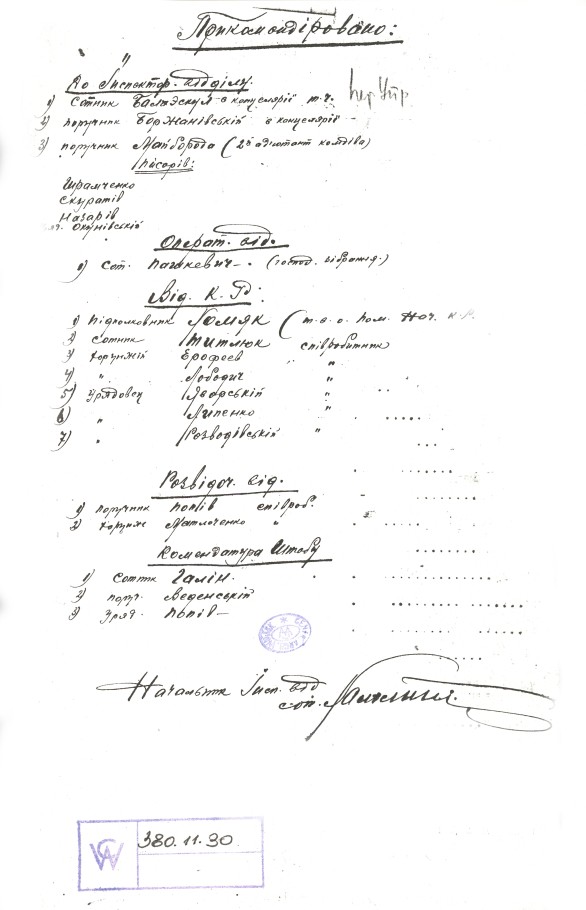 Прикомандіровано:
До Інспектор. відділу:
1) Сотник в канцелярії т.ч.
2) поручник Боржанівській в канцелярії –
3) поручник Майборода (2й адютант комдіва)
писарів:
Шрамченко
Скуратів
Назарів
Окунівській
Операт. від.
1) сот. Пашкевич – (господ.
Від. К. Р.:
1) Підполковник Хомяк (т.в.о. пом. Нач. К.Р.
2) сотник Титлюк співробітник
3) хорунжій Ерофеев "
4) " Лободич "
5) Урядовец Яварській "
6) " Липенко "
7) " Розводівській "
Розвідоч. від.
1) поручник Попів співроб.
2) хорунж "
Комендатура Штабу
1) сотник Галін.
2) пор. Веденській
3) Уряд. Попів –
Начальник Інсп. від
сот.
CAW
380.11.30